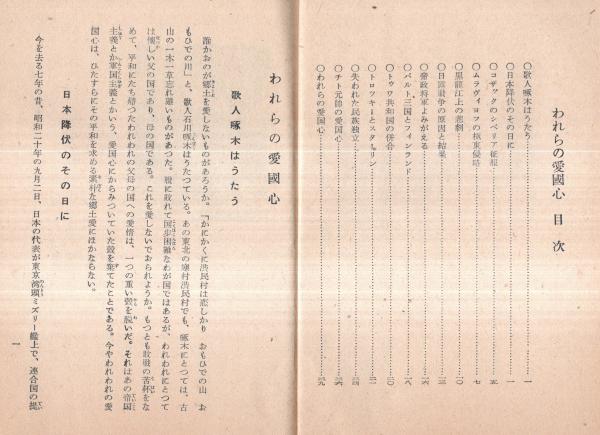 われらの愛國心 目次
〇歌人啄木はうたう………一
〇日本降伏のその日に………一
〇コザックのシベリア征服………五
〇ムラヴィヨフの極東侵略………七
〇黒龍江上の悲劇………一〇
〇日露戦争の原因と結果………一三
〇帝政将軍よみがえる………一六
〇バルト三国とフィンランド………一八
〇トウワ共和国の併合………二〇
〇トロツキーとスターリン………二二
〇失われた民族独立………二四
〇チトー元帥の愛国心………二六
〇われらの愛国心………二九
われらの愛國心
歌人啄木はうたう
誰かおのが郷土を愛しないものがあろうか。「かにかくに渋民村は恋しかり おもひでの山 お
もひでの川」と、歌人石川啄木はうたつている。あの東北の寒村渋民村でも、啄木にとつては、古
山の一木一草忘れ難いものがあつた。戦に敗れて国歩困難なわが国ではあるが、われわれにとつて
は懐しい父の国であり、母の国である。これを愛しないでおられようか。もつとも敗戦の苦杯をな
めて、平和にたち帰つたわれわれの父母の国への愛情は、一つの重い殻を脱いだ。それはあの帝国
主義とか軍国主義とかいう、愛国心にからみついていた殻を棄てたことである。今やわれわれの愛
国心は、ひたすらにその平和を求める素朴な郷土愛にほかならない。
日本降伏のその日に
今を去る七年の昔、昭和二十年の九月二日、日本の代表が東京湾頭ミズリー艦上で、連合国の提
一